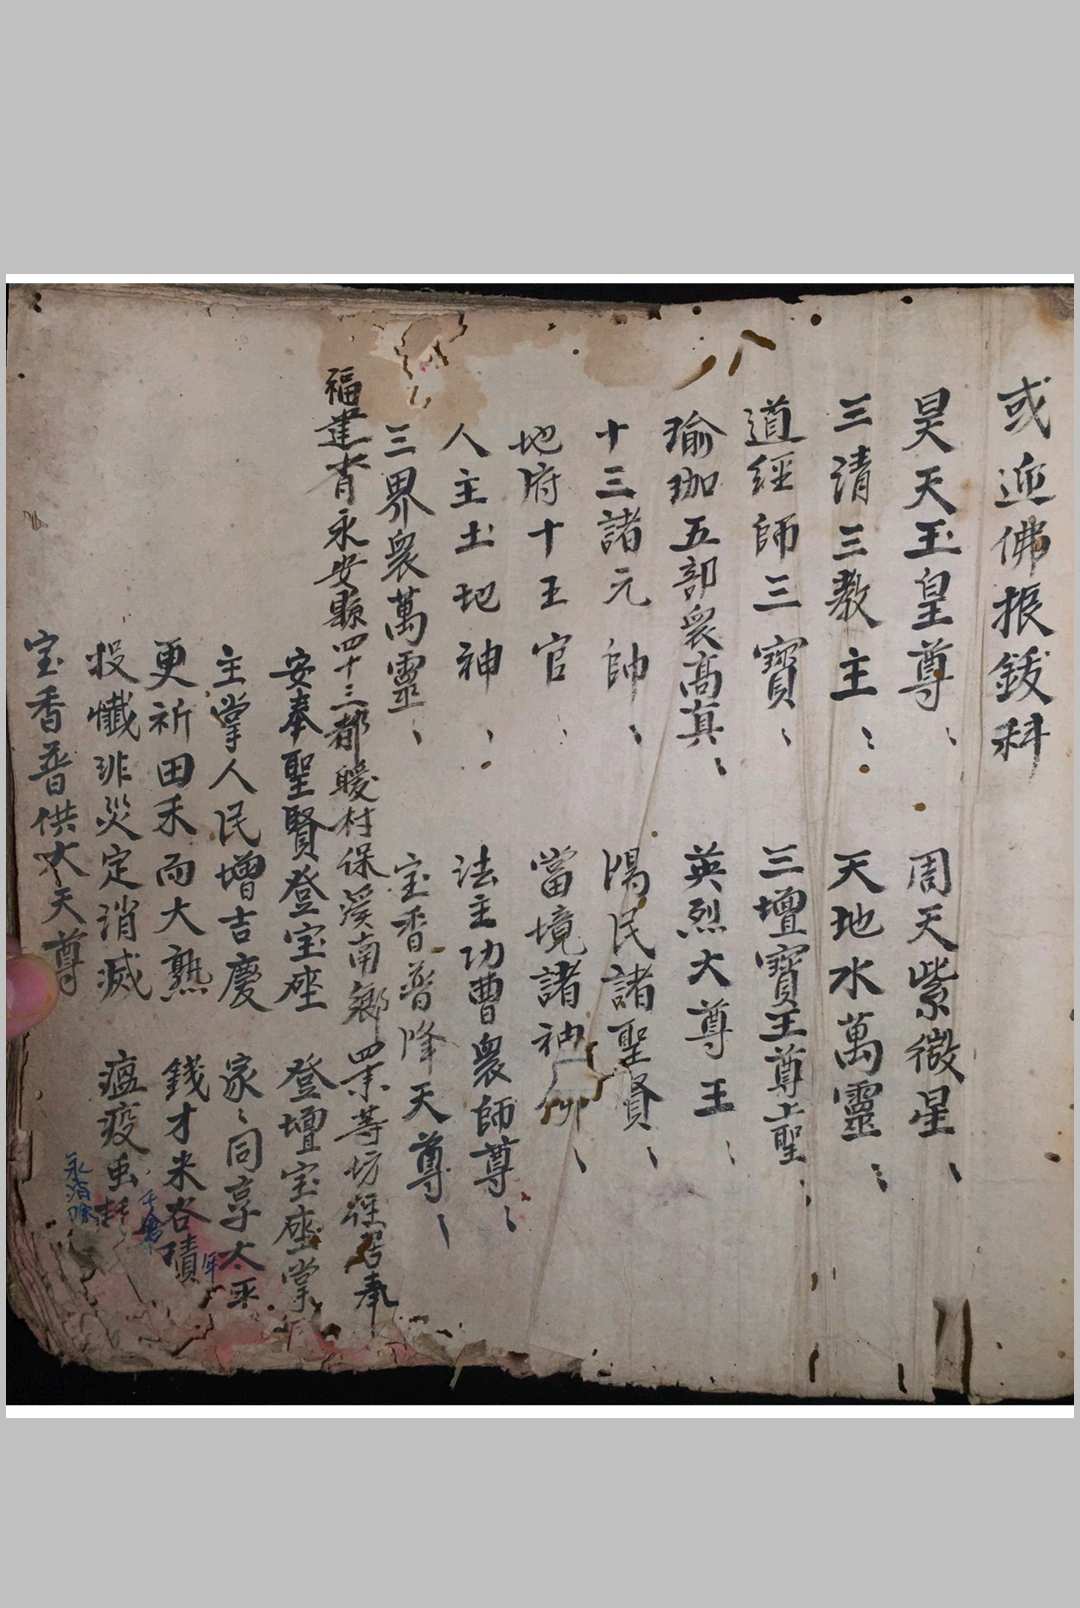 或迎佛振鈸科
昊天玉皇尊、、 周天紫微星、、
三清三教主、、 天地水萬靈、、
道經師三寶、、 三壇寶王尊上聖、、
瑜珈五部衆高真、、 英烈大尊王、、
十三諸元帥、、 陽民諸聖賢、、
地府十王官、、 當境諸神、、
人主土地神、、 法主功曹衆師尊、、
三界衆萬靈、、 宝香普降天尊、、
福建省永安縣四十三都暖村保溪南鄉四末等坊經居奉
安奉聖賢登宝座 登壇宝座掌
主掌人民增吉慶 家、同享太平
更祈田禾而大熟 錢才米谷積 年
投懺非災定消滅 瘟疫虫耗
永消除
宝香普供大天尊